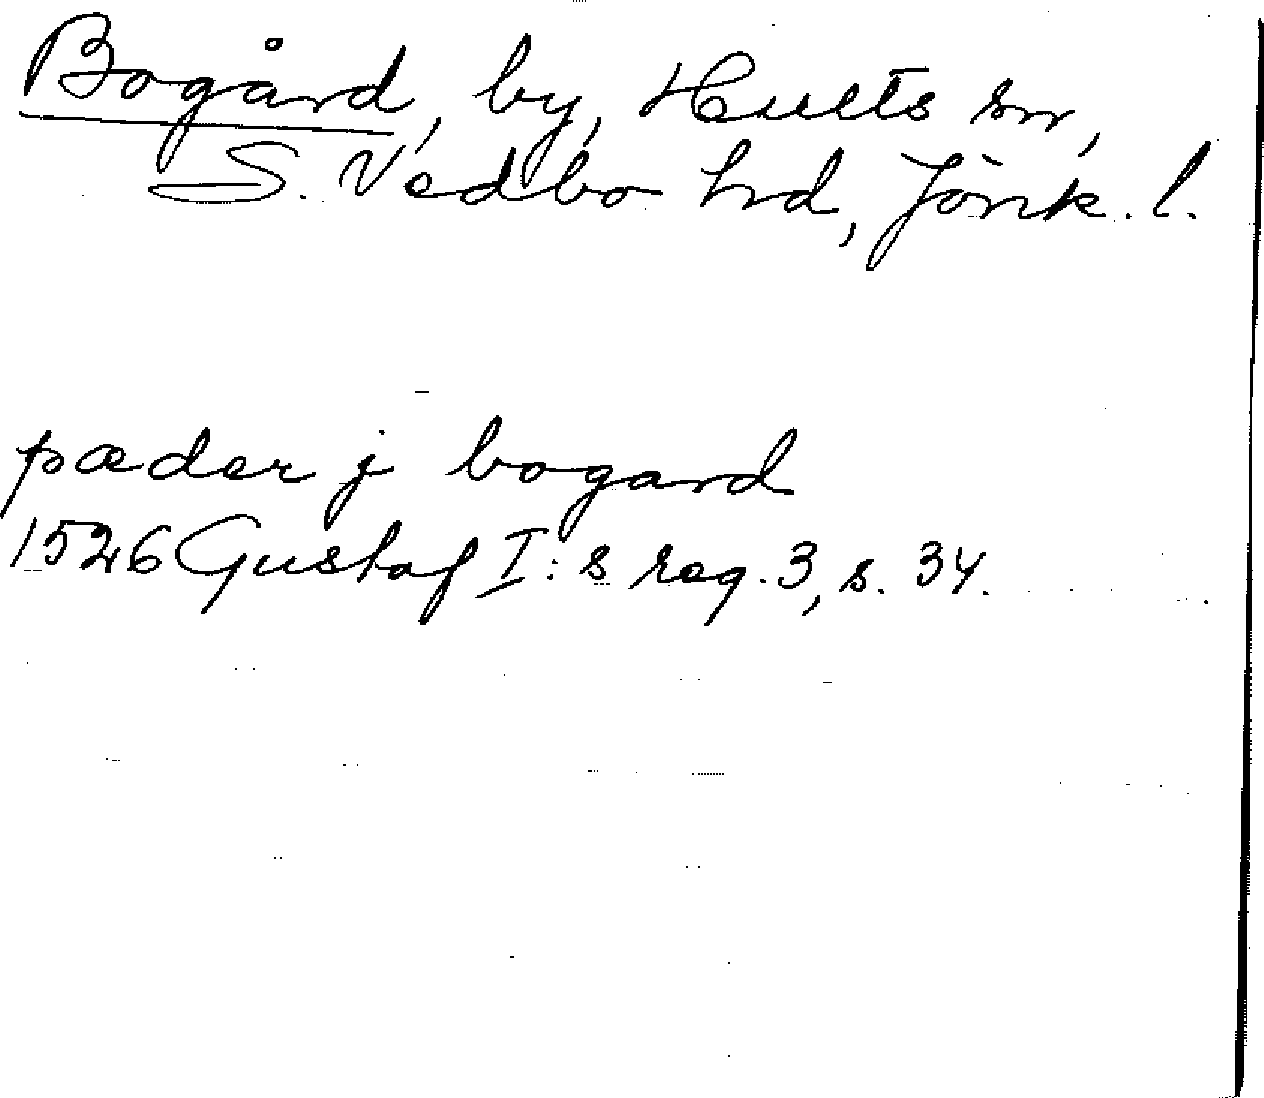 Bogård, by, Hults sn,
S. Vedbo hd, Jönk. l.
pæder j bogard
1526 Gustaf I:s reg. 3, s. 34.